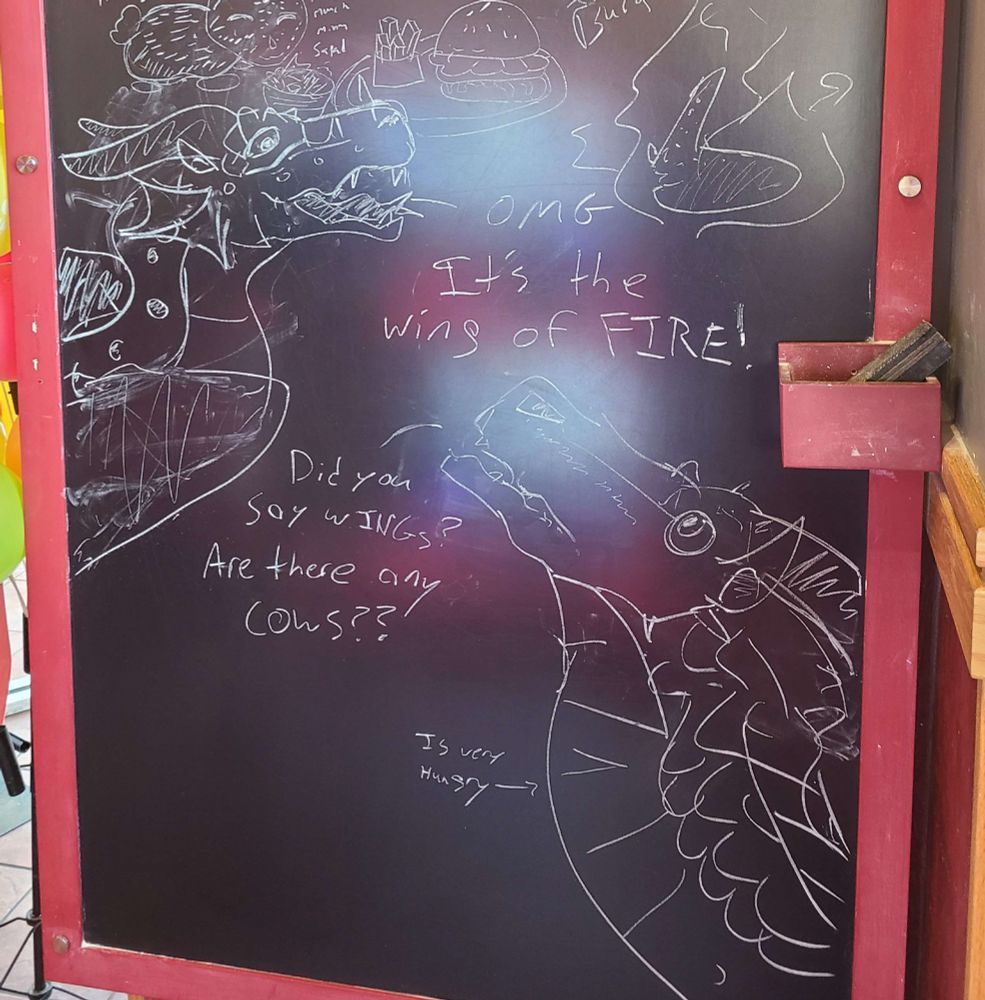 munch
mmm
Salad
Burg
OMG
It's the
wing of FIRE!
Did you
say wINGs?
Are there any
cows??
Is very
Hungry →